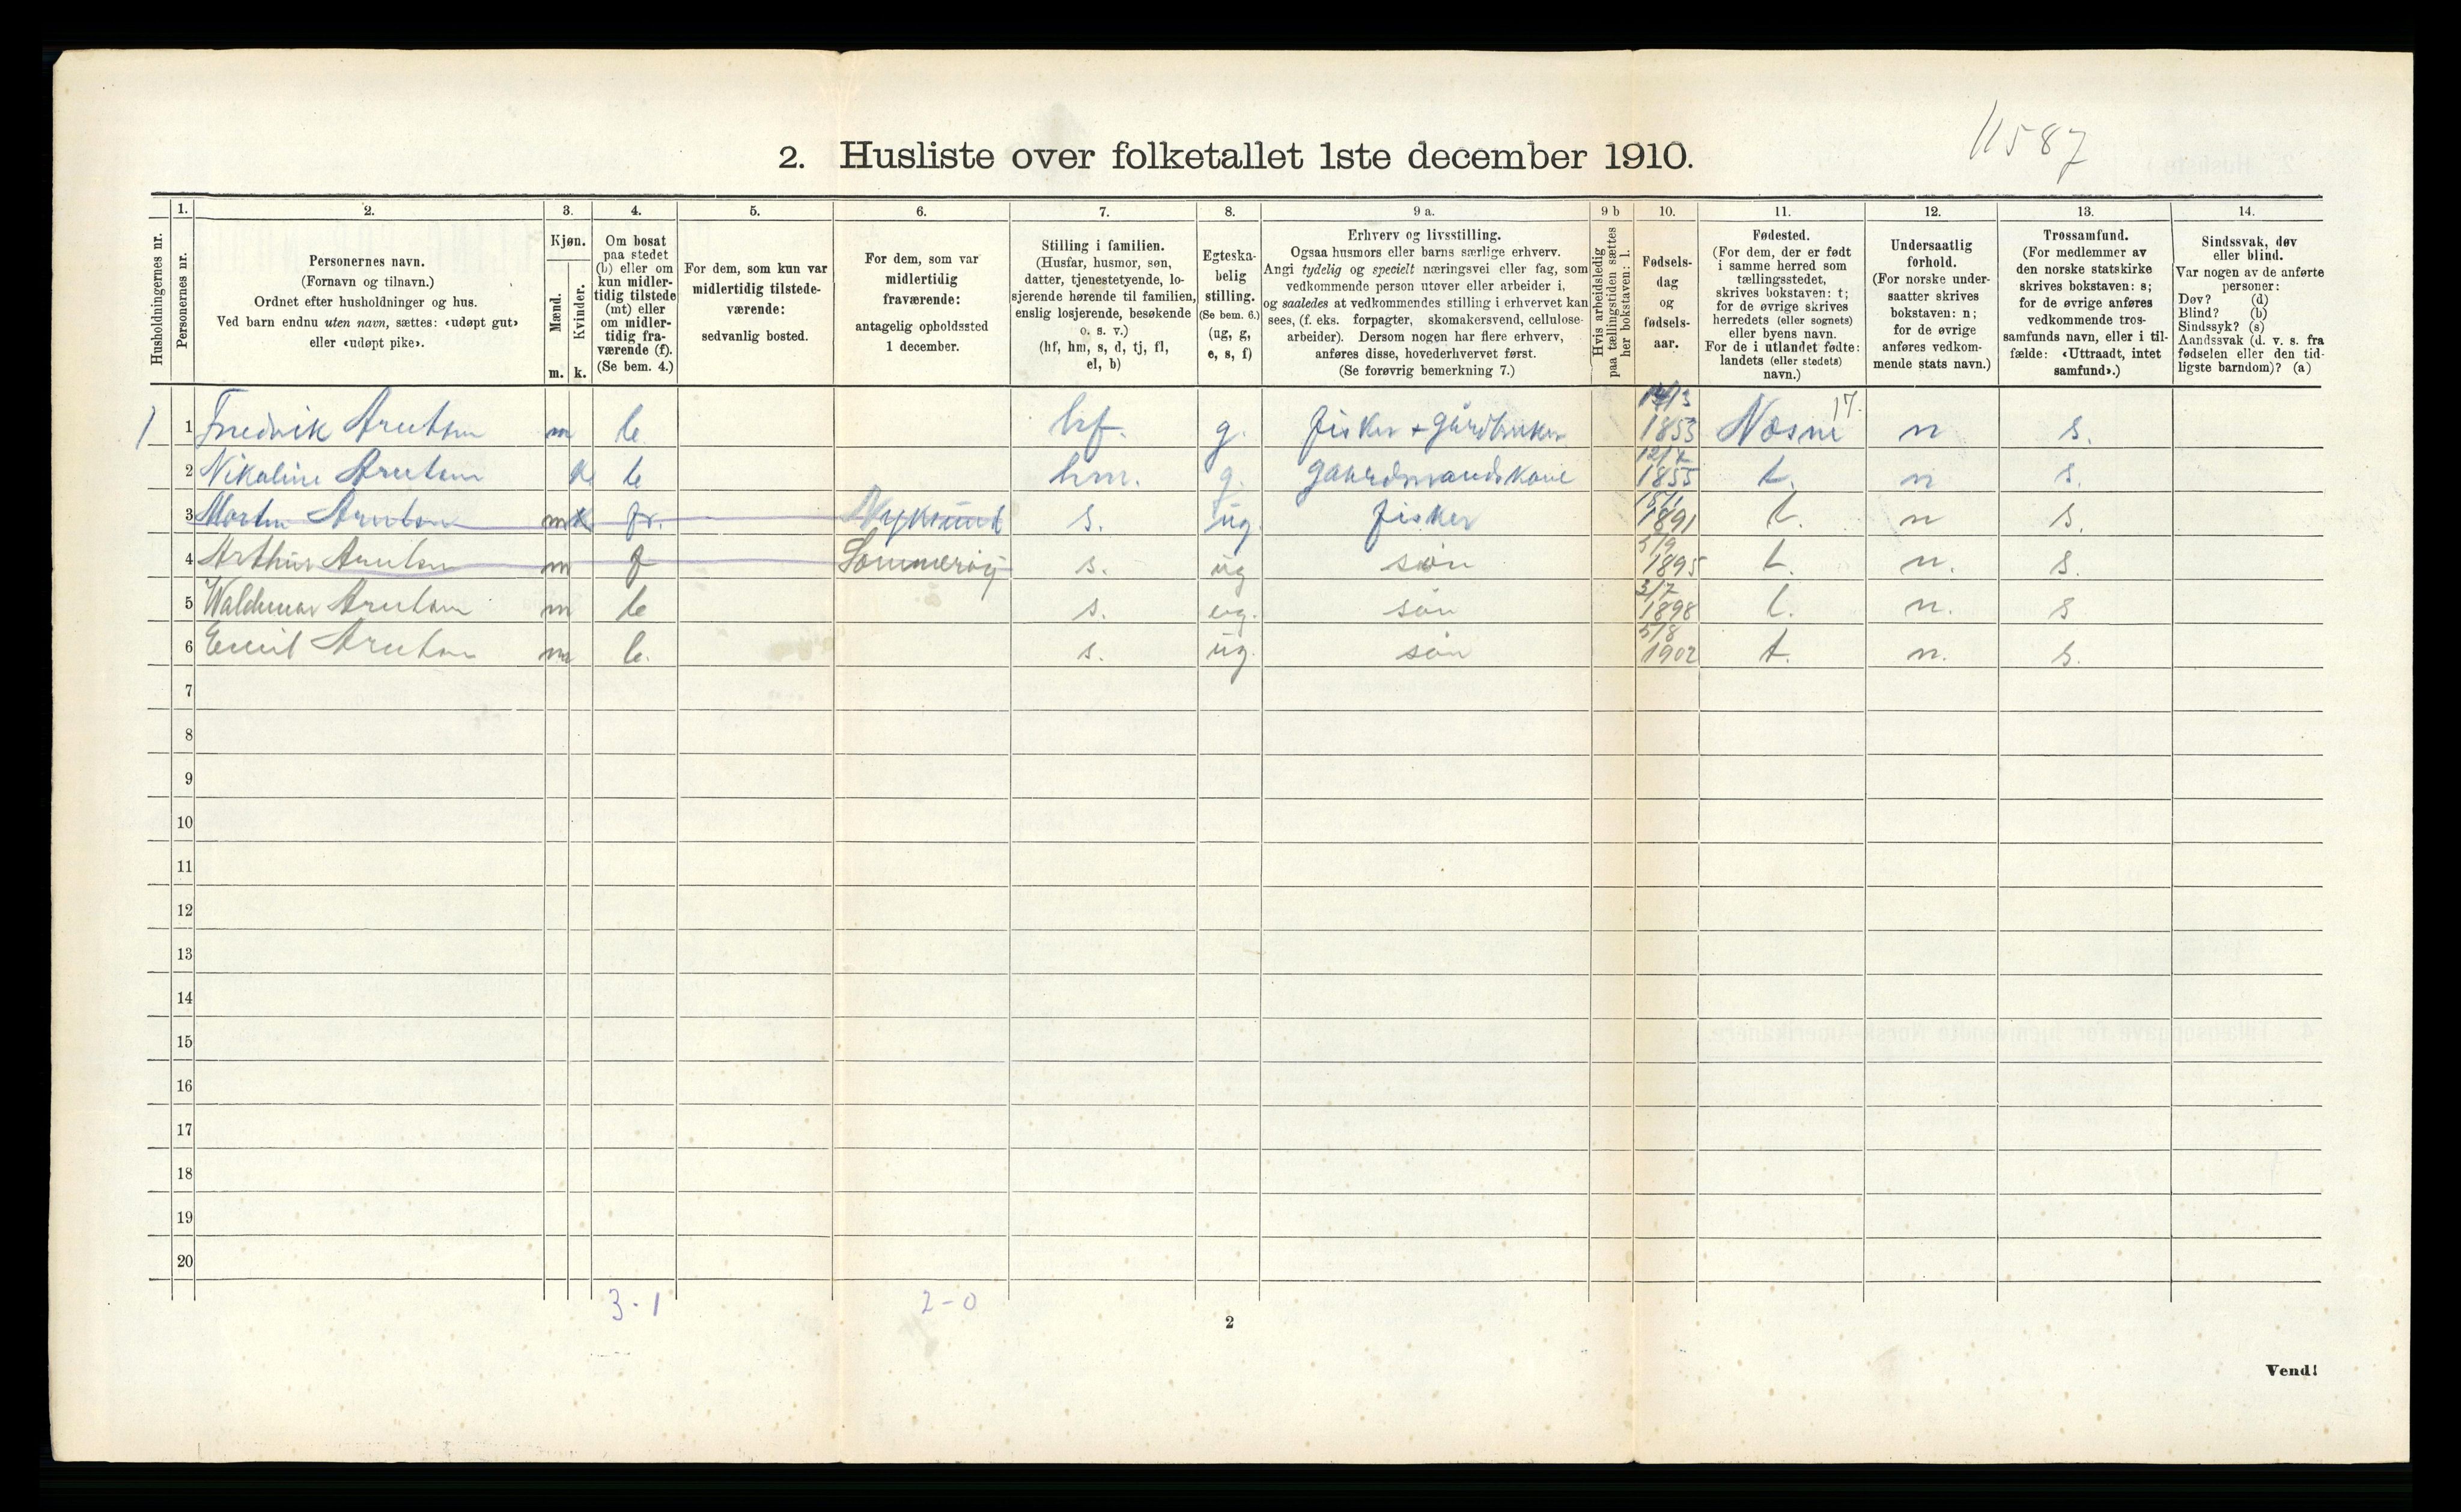 11587
2. Husliste over folketallet 1ste december 1910.
Husholdningernes nr.
1.
Personernes nr.
2.
Personernes navn.
(Fornavn og tilnavn.)
Ordnet efter husholdninger og hus.
Ved barn endnu uten navn, sættes: «udøpt gut»
eller «udøpt pike».
3.
Kjøn.
Mænd.
Kvinder.
m. k.
4.
Om bosat
paa stedet
(b) eller om
kun midler-
tidig tilstede
(mt) eller
om midler-
tidig fra-
værende (f).
(Se bem. 4.)
5.
For dem, som kun var
midlertidig tilstede-
værende:
sedvanlig bosted.
6.
For dem, som var
midlertidig
fraværende:
antagelig opholdssted
1 december.
7.
Stilling i familien.
(Husfar, husmor, søn,
datter, tjenestetyende, lo-
sjerende hørende til familien,
enslig losjerende, besøkende
o. s. v.)
(hf, hm, s, d, tj, fl,
el, b)
8.
Egteska-
belig
stilling.
(Se bem. 6.)
(ug, g,
e, s, f)
9 a.
Erhverv og livsstilling.
Ogsaa husmors eller barns særlige erhverv.
Angi tydelig og specielt næringsvei eller fag, som
vedkommende person utøver eller arbeider i,
og saaledes at vedkommendes stilling i erhvervet kan
sees, (f. eks. forpagter, skomakersvend, cellulose-
arbeider). Dersom nogen har flere erhverv,
anføres disse, hovederhvervet først.
(Se forøvrig bemerkning 7.)
9 b
Hvis arbeidsledig
paa tællingstiden sættes
her bokstaven: l.
10.
Fødsels-
dag
og
fødsels-
aar.
11.
Fødested.
(For dem, der er født
i samme herred som
tællingsstedet,
skrives bokstaven: t;
for de øvrige skrives
herredets (eller sognets)
eller byens navn.
For de i utlandet fødte:
landets (eller stedets)
navn.)
12.
Undersaatlig
forhold.
(For norske under-
saatter skrives
bokstaven: n;
for de øvrige
anføres vedkom-
mende stats navn.)
13.
Trossamfund.
(For medlemmer av
den norske statskirke
skrives bokstaven: s;
for de øvrige anføres
vedkommende tros-
samfunds navn, eller i til-
fælde: «Uttraadt, intet
samfund».)
14.
Sindssvak, døv
eller blind.
Var nogen av de anførte
personer:
Døv? (d)
Blind? (b)
Sindssyk? (s)
Aandssvak (d. v. s. fra
fødselen eller den tid-
ligste barndom)? (a)
1 1 Fredrik Arntsen m b hf. g. fisker + gårdbruker 1853 Nesne 17. n s.
2 Nikoline Arntsen k b hm. g. gaardmandskone 12/4 1855 t. n s.
3 Morten Arntsen m fr. Nyksund s. ug. fisker 1891 t. n s.
4 Arthur Arntsen m f Sommerøy s. ug søn 5/9 1895 t. n. s.
5 Waldemar Arntsen m b s. ug. søn 3/7 1898 t. n. s
6 Emil Arntsen m b. s. ug. søn 5/8 1902 t. n. s.
7
8
9
10
11
12
13
14
15
16
17
18
19
20
3-1 2-0
2
Vend!